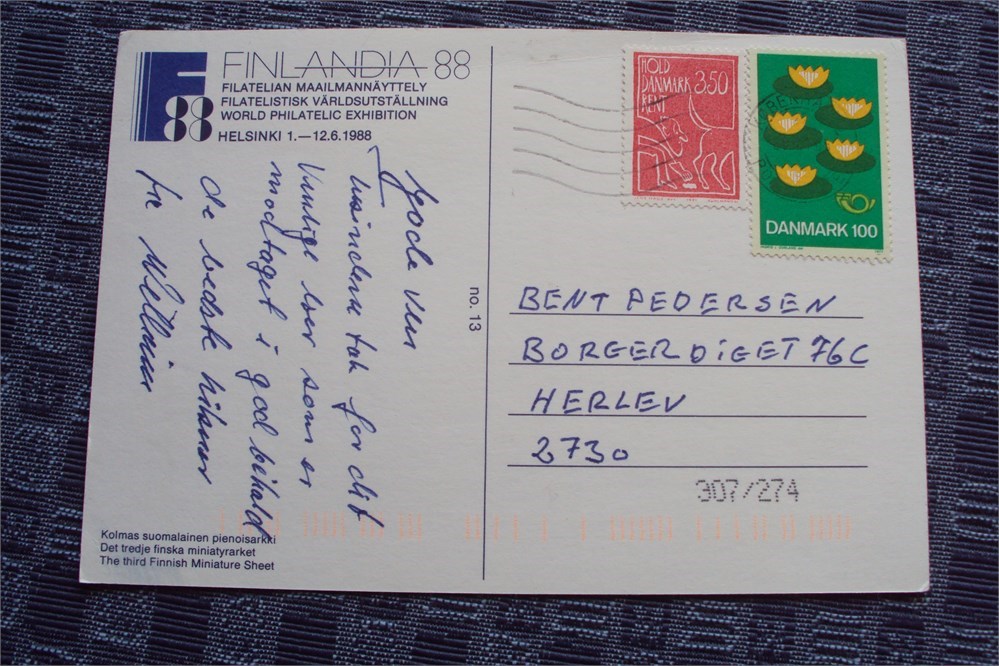 FINLANDIA 88
88
FILATELIAN MAAILMANNÄYTTELY
FILATELISTISK VÄRLDSUTSTÄLLNING
WORLD PHILATELIC EXHIBITION
HELSINKI 1.—12.6.1988
gode ven
tusinde tak for dit
venlige som er
modtaget i god behold
de bedste hilsener
fra
Kolmas suomalainen pienoisarkki
Det tredje finska miniatyrarket
The third Finnish Miniature Sheet
no. 13
HOLD
DANMARK
RENT
3.50
DANMARK 100
BENT PEDERSEN
BORGERDIGET 76C
HERLEV
2730
307/274